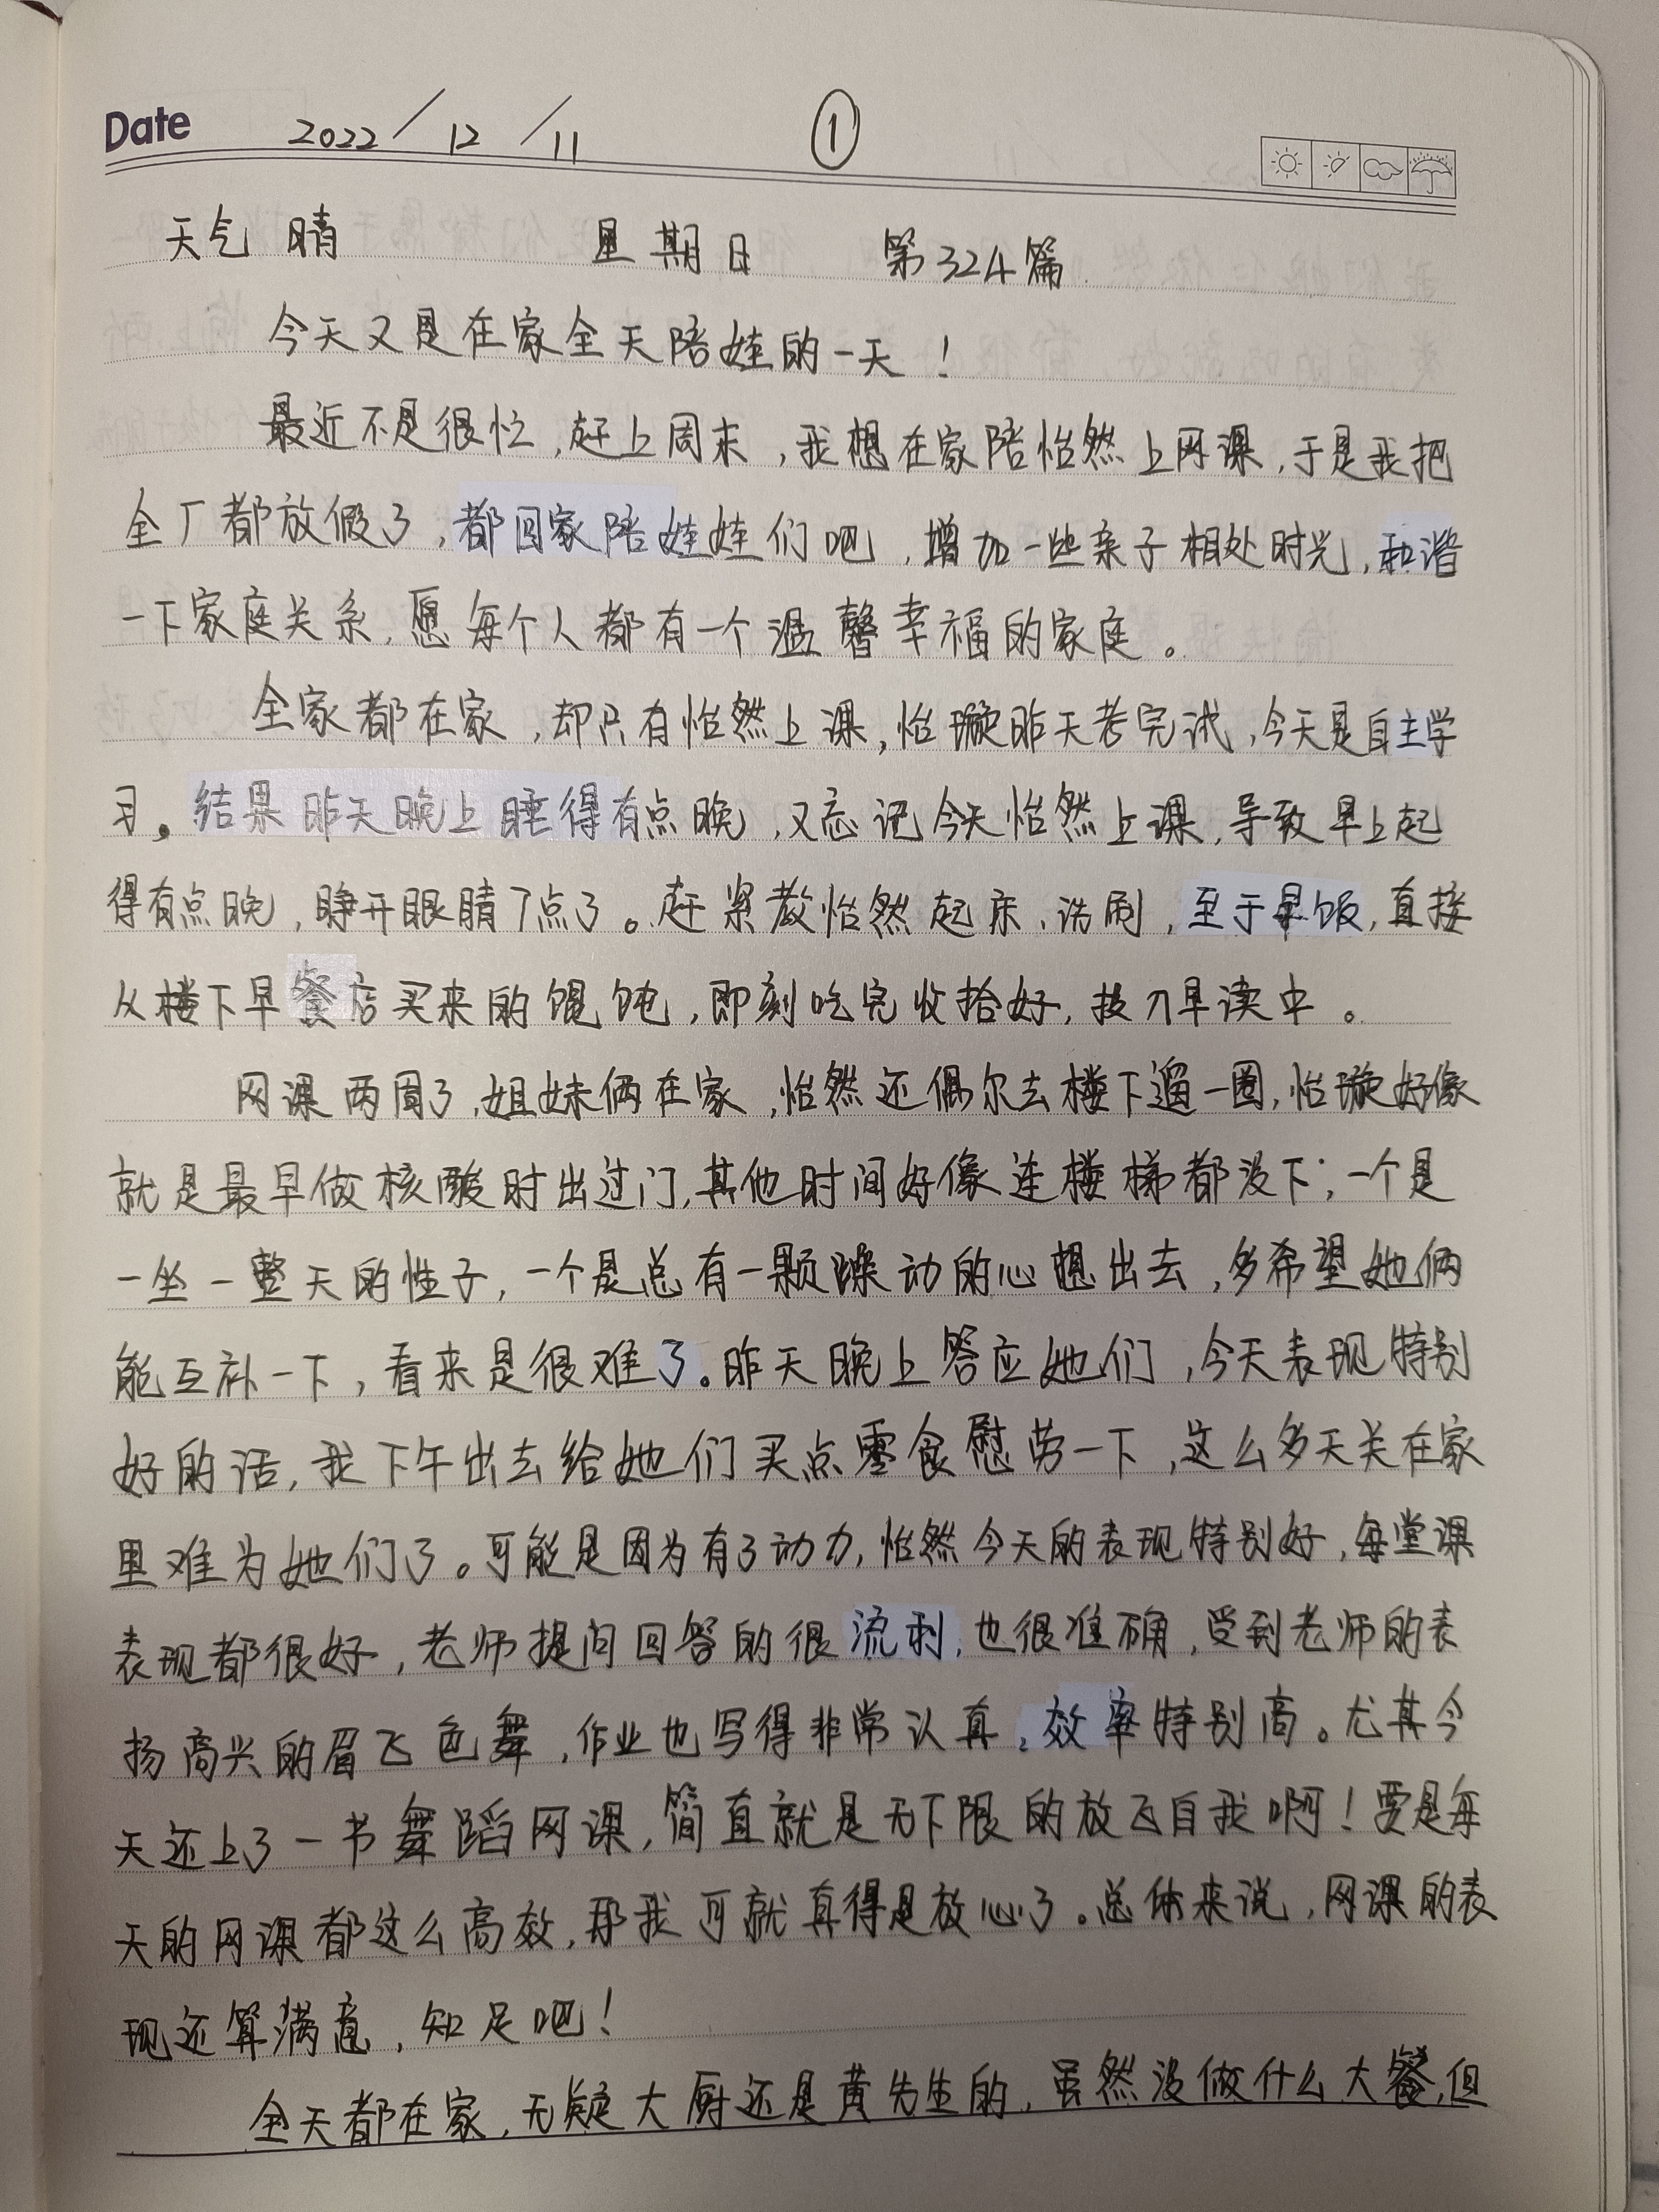 Date 2022/12/11 ①
天气 晴 星期日 第324篇
今天又是在家全天陪娃的一天！
最近不是很忙,赶上周末,我想在家陪怡然上网课,于是我把
全厂都放假了,都回家陪娃娃们吧,增加一些亲子相处时光,和谐
一下家庭关系,愿每个人都有一个温馨幸福的家庭。
全家都在家,却只有怡然上课,怡璇昨天考完试,今天是自主学
习。结果昨天晚上睡得有点晚,又忘记今天怡然上课,导致早上起
得有点晚,睁开眼睛7点了。赶紧教怡然起床、洗刷,至于早饭,直接
从楼下早餐店买来的馄饨,即刻吃完收拾好,投入早读中。
网课两周了,姐妹俩在家,怡然还偶尔去楼下遛一圈,怡璇好像
就是最早做核酸时出过门,其他时间好像连楼梯都没下;一个是
一坐一整天的性子,一个是总有一颗躁动的心想出去,多希望她俩
能互补一下,看来是很难了。昨天晚上答应她们,今天表现特别
好的话,我下午出去给她们买点零食慰劳一下,这么多天关在家
里难为她们了。可能是因为有了动力,怡然今天的表现特别好,每堂课
表现都很好,老师提问回答的很流利,也很准确,受到老师的表
扬高兴的眉飞色舞,作业也写得非常认真,效率特别高。尤其今
天还上了一节舞蹈网课,简直就是无下限的放飞自我啊！要是每
天的网课都这么高效,那我可就真得是放心了。总体来说,网课的表
现还算满意,知足吧！
全天都在家,无疑大厨还是黄先生的,虽然没做什么大餐,但